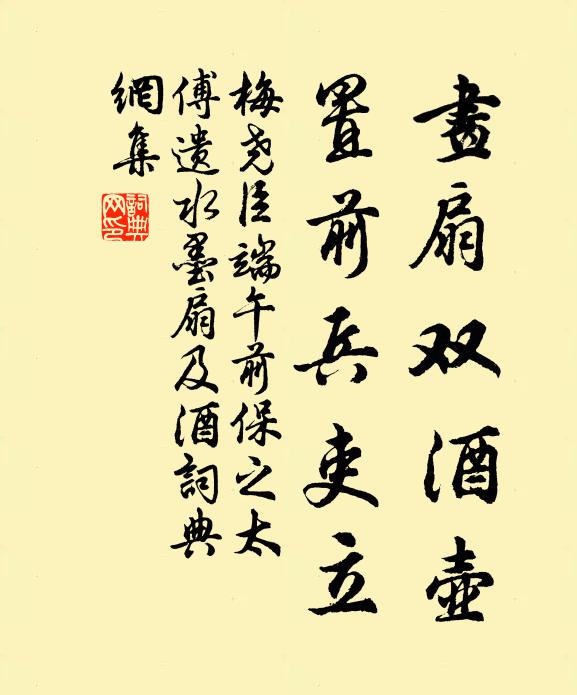 畫扇双酒壺
置前兵吏立
梅尧臣端午前保之太
傅遗水墨扇及酒詞典
網集
詞典网印